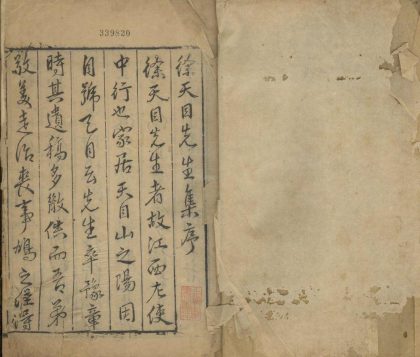 339820
徐天目先生集序
徐天目先生者故江西左使
中行也家居天目山之陽因
自號天目云先生卒豫章
時其遺稿多散佚而吾弟
敬美走治喪事鳩之僅得